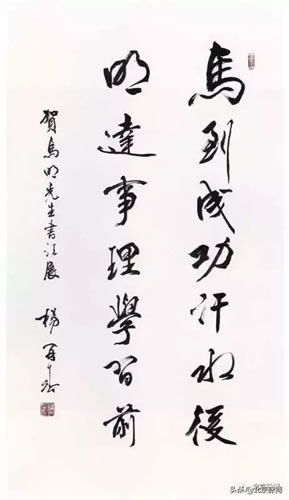 馬到成功汗水後
明達事理學習前
賀馬明先生書法展 楊再春